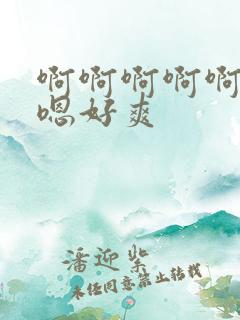 啊啊啊啊啊
嗯好爽
潘迎紫
未经同意禁止转载